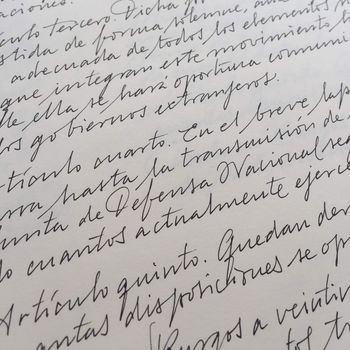 aciones.
culo tercero. Dicha
stida de forma solemne, 
adecuada de todos los elementos n
que integran este movimiento
de ella se hará oportuna comuni
los gobiernos extranjeros.
rtículo cuarto. En el breve lap
rra hasta la transmisión de
unta de Defensa Nacional seg
do cuantos actualmente ejerce
Artículo quinto. Quedan der
antas disposiciones se op
Burgos a veinti